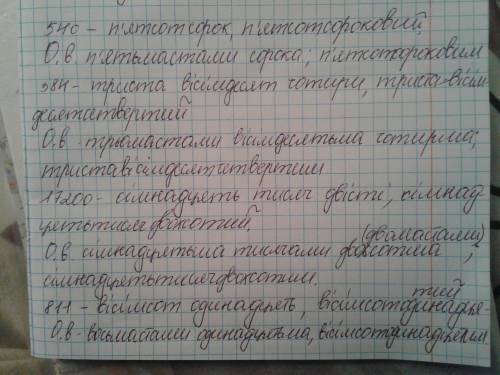 540 - п'ятсот сорок, п'ятсотсороковий.
О.в. п'ятьмастами сорока; п'ятсотсороковим
384 - триста вісімдесят чотири, триста-вісім
десятчетвертий
О.в - трьомастами вісімдесятьма чотирма;
триставісімдесятчетвертим
17200 - сімнадцять тисяч двісті, сімнад-
цятьтисячдвохсотий.
(двомастами)
О.в. сімнадцятьма тисячами ;
сімнадцятьтисячдвохсотим.
тий
811 - вісімсот одинадцять, вісімсотодинадця-
О.в - восьмастами одинадцятьма, вісімсотодинадцятим